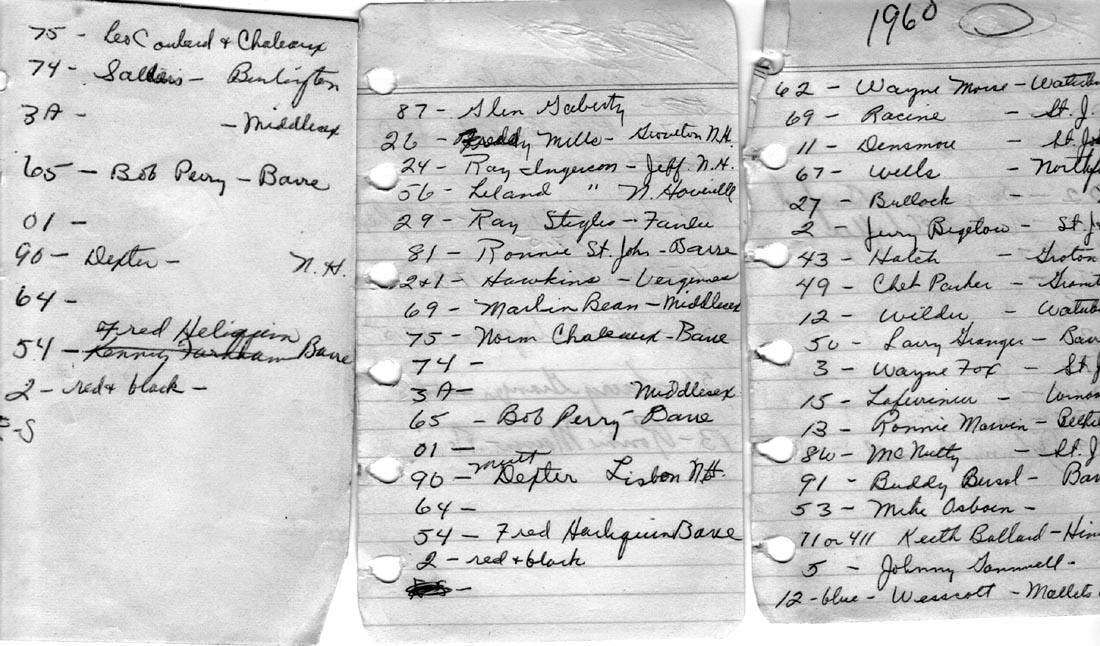 75 - Leo Coulard & Chaleaux
74 - - Burlington
3A - - Middlesex
65 - Bob Perry - Barre
01 -
90 - Depter - N.H.
64 -
Fred Heliquin
54 - Kenny Farnham Barre
2 - red & black -
-S
87 - Glen Gaberty
26 - Freddy Mills - Groveton N.H.
24 - Ray Ingerson - Jeff. N.H.
56 - Leland " N. Haverill
29 - Ray Stygles -
81 - Ronnie St. John - Barre
2+1 - Hawkins - Vergennes
69 - Marlin Bean - Middlesex
75 - Norm Chaleaux - Barre
74 -
3A - Middlesex
65 - Bob Perry - Barre
01 -
90 - Depter Lisbon N.H.
64 -
54 - Fred Harliquin Barre
2 - red + black
-
1960
62 - Wayne Morse -
69 - Racine - St. J.
11 - Densmore - St.
67 - Wells -
27 - Bullock -
2 - Jerry Bigelow - St. J
43 - Hatch - Groton
49 - Chet Parker -
12 - Wilder -
50 - Larry Granger -
3 - Wayne Fox - St. J
15 -
13 - Ronnie Marvin -
86 - McNutty - St. J
91 - Buddy -
53 - Mike Osborn -
71 or 411 Keith Ballard -
5 - Johnny Gammell -
12 - blue - Wesscott - Malletts